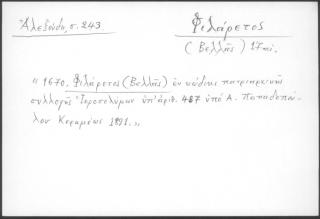 Ἀλεξούδη, σ. 243
Φιλάρετος
(Βελλᾶς) 17 αἰ.
« 1670. Φιλάρετος (Βελλᾶς) ἐν κώδικι πατριαρχικῆς
συλλογῆς Ἱεροσολύμων ὑπ' ἀριθ. 487 ὑπὸ Α. Παπαδοπού-
λου Κεραμέως 1891. »